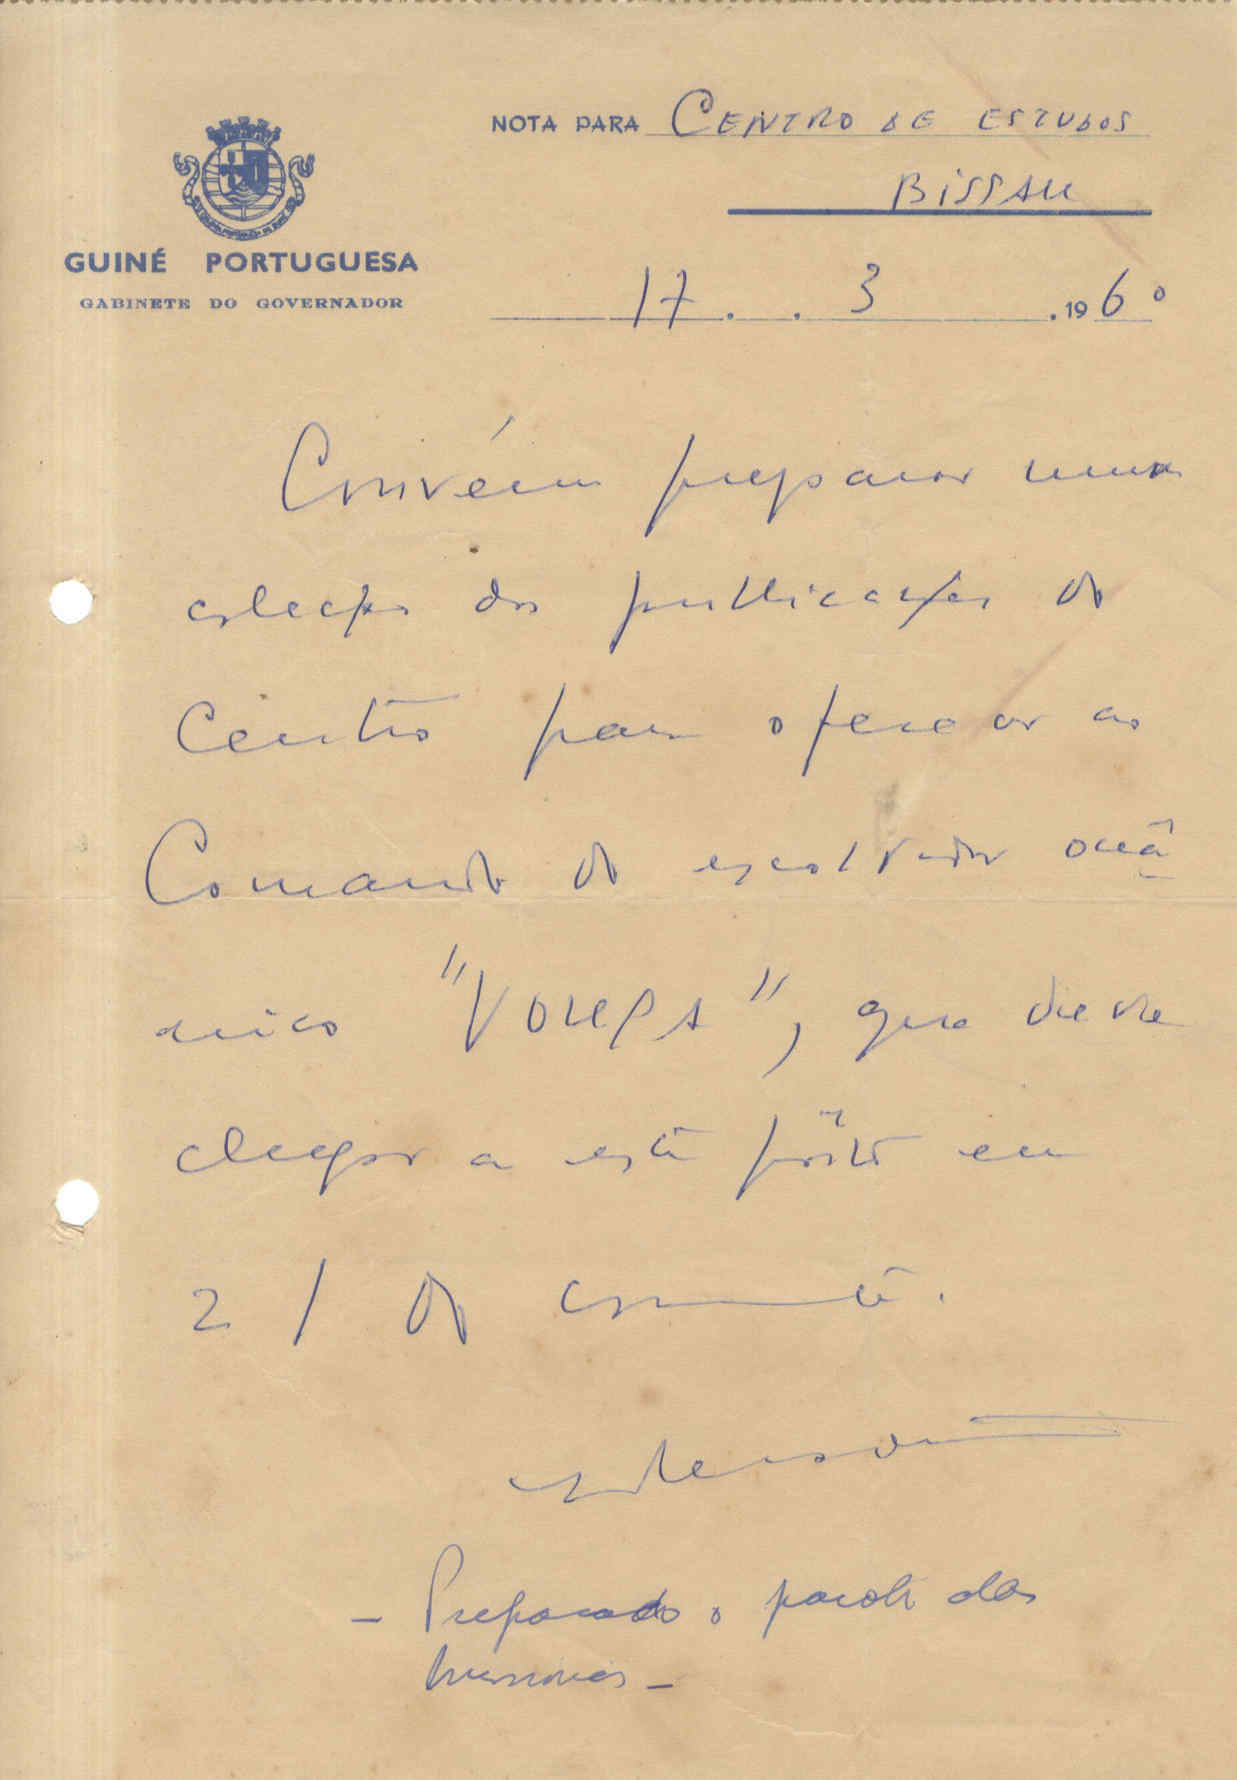 NOTA PARA CENTRO DE ESTUDOS
BISSAU
GUINÉ PORTUGUESA
GABINETE DO GOVERNADOR
17 . . 3 . 1960
Convém preparar uma
colecção das publicações do
Centro para oferecer ao
Comando do escoltador oceâ
nico "VOUGA", que deve
chegar a este pôrto em
21 do corrente.
- Preparado o pacote das
memórias -